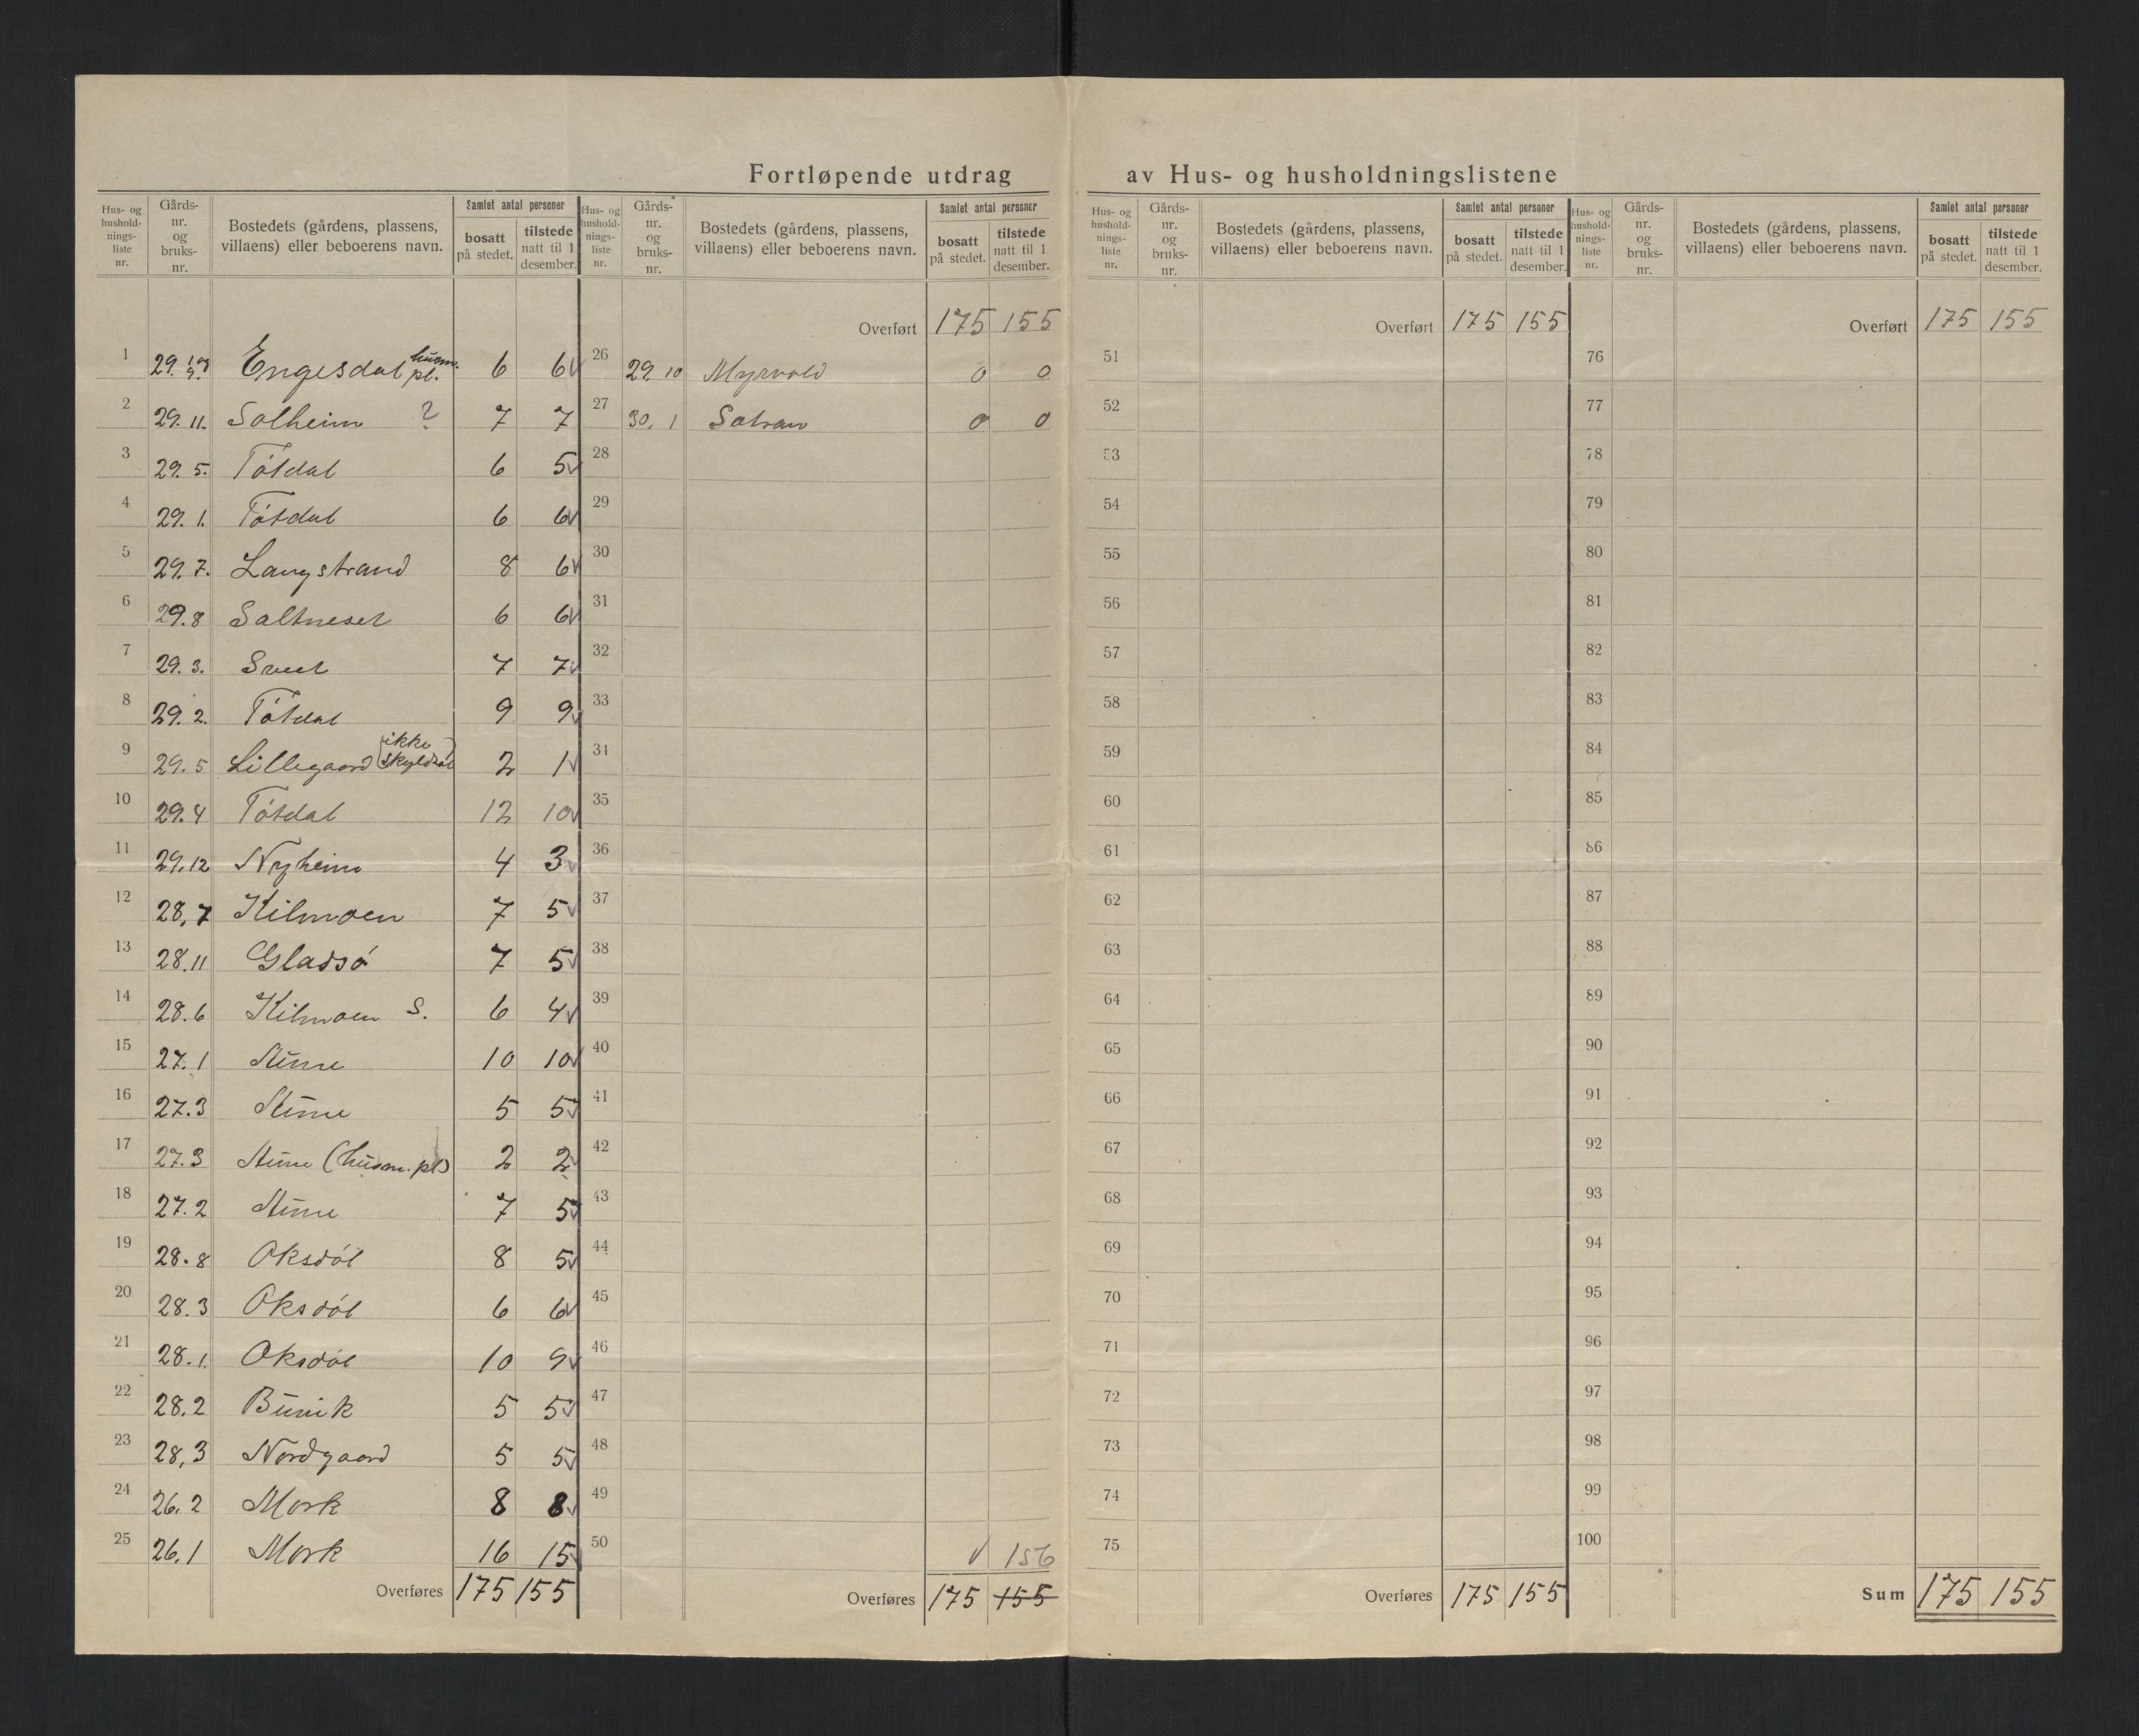 Fortløpende utdrag av Hus- og husholdningslistene
Hus- og hushold- nings- liste nr. | Gårds- nr. og bruks- nr. | Bostedets (gårdens, plassens, villaens) eller beboerens navn. | Samlet antal personer | bosatt på stedet. | tilstede natt til 1 desember.
1 29. Engesdal husm. pl. 6 6 v
2 29. 11. Solheim ? 7 7
3 29. 5. Tótdal 6 5 v
4 29. 1. Tótdal 6 6 v
5 29. 7. Langstrand 8 6 v
6 29. 8 Saltneset 6 6 v
7 29. 3. 7 7 v
8 29. 2. Tótdal 9 9 v
9 29. 5 Lillegaard (ikke skyldsat) 2 1 v
10 29. 4 Tótdal 12 10 v
11 29. 12 Nyheim 4 3 v
12 28, 7 Kilmoen 7 5 v
13 28. 11 Gladsó 7 5 v
14 28. 6 Kilmoen S. 6 4 v
15 27. 1 Aune 10 10 v
16 27. 3 Aune 5 5 v
17 27. 3 Aune (husm. pl) 2 2 v
18 27. 2 Aune 7 5 v
19 28. 8 Oksdól 8 5 v
20 28. 3 Oksdól 6 6 v
21 28. 1. Oksdól 10 9 v
22 28. 2 Burik 5 5 v
23 28, 3 Nordgaard 5 5 v
24 26. 2 Mork 8 8 v
25 26. 1 Mork 16 15 v
Overføres 175 155
Hus- og hushold- nings- liste nr. | Gårds- nr. og bruks- nr. | Bostedets (gårdens, plassens, villaens) eller beboerens navn. | Samlet antal personer | bosatt på stedet. | tilstede natt til 1 desember.
Overført 175 155
26 29. 10 Myrvold 0 0
27 30. 1 0 0
28
29
30
31
32
33
34
35
36
37
38
39
40
41
42
43
44
45
46
47
48
49
50 v 156
Overføres 175 155
Hus- og hushold- nings- liste nr. | Gårds- nr. og bruks- nr. | Bostedets (gårdens, plassens, villaens) eller beboerens navn. | Samlet antal personer | bosatt på stedet. | tilstede natt til 1 desember.
Overført 175 155
51
52
53
54
55
56
57
58
59
60
61
62
63
64
65
66
67
68
69
70
71
72
73
74
75
Overføres 175 155
Hus- og hushold- nings- liste nr. | Gårds- nr. og bruks- nr. | Bostedets (gårdens, plassens, villaens) eller beboerens navn. | Samlet antal personer | bosatt på stedet. | tilstede natt til 1 desember.
Overført 175 155
76
77
78
79
80
81
82
83
84
85
86
87
88
89
90
91
92
93
94
95
96
97
98
99
100
Sum 175 155